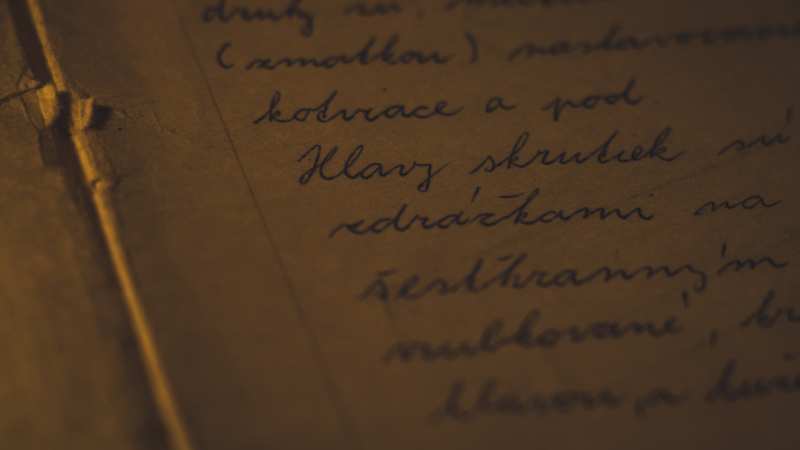 druhy sú,
(zmatkou) nastavovacie
kotviace a pod.
Hlavy skrutiek sú
zdrážkami na
šesťhranným
vrubkované, kr
hlavou, a